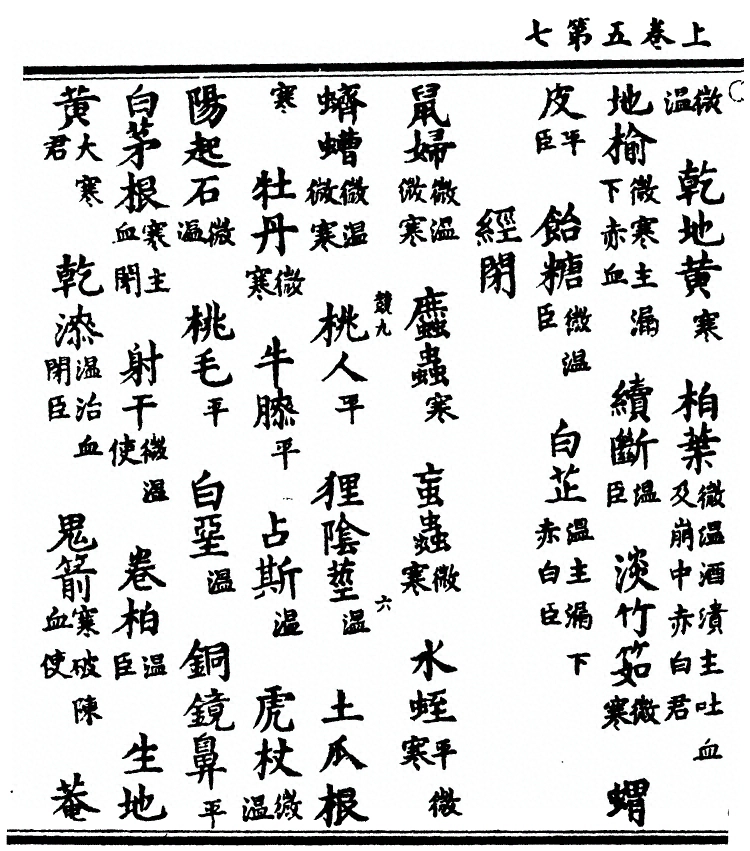 上卷五第七
微溫 乾地黃 寒 柏葉 微溫酒漬主吐血及崩中赤白君
地榆 微寒主漏下赤血 續斷 溫臣 淡竹茹 微寒 蝟
皮 平臣 飴糖 微溫臣 白芷 溫主漏下赤白臣
經閉
鼠婦 微溫微寒 䗪蟲 寒 䖟蟲 微寒 水蛭 平微寒
六
蠐螬 微溫微寒 桃人 平 狸陰莖 溫 土瓜根
寒 牡丹 微寒 牛膝 平 占斯 溫 虎杖 微溫
陽起石 微溫 桃毛 平 白堊 溫 銅鏡鼻 平
白茅根 寒主血閉 射干 微溫使 卷柏 溫臣 生地
黃 大寒君 乾漆 溫治血閉臣 鬼箭 寒破陳血使 菴